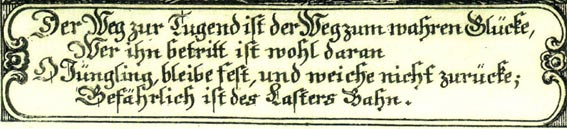 Der Weg zur Tugend ist der Weg zum wahren Glücke,
Wer ihn betritt ist wohl daran
O Jüngling, bleibe fest, und weiche nicht zurücke;
Gefährlich ist des Lasters Bahn.